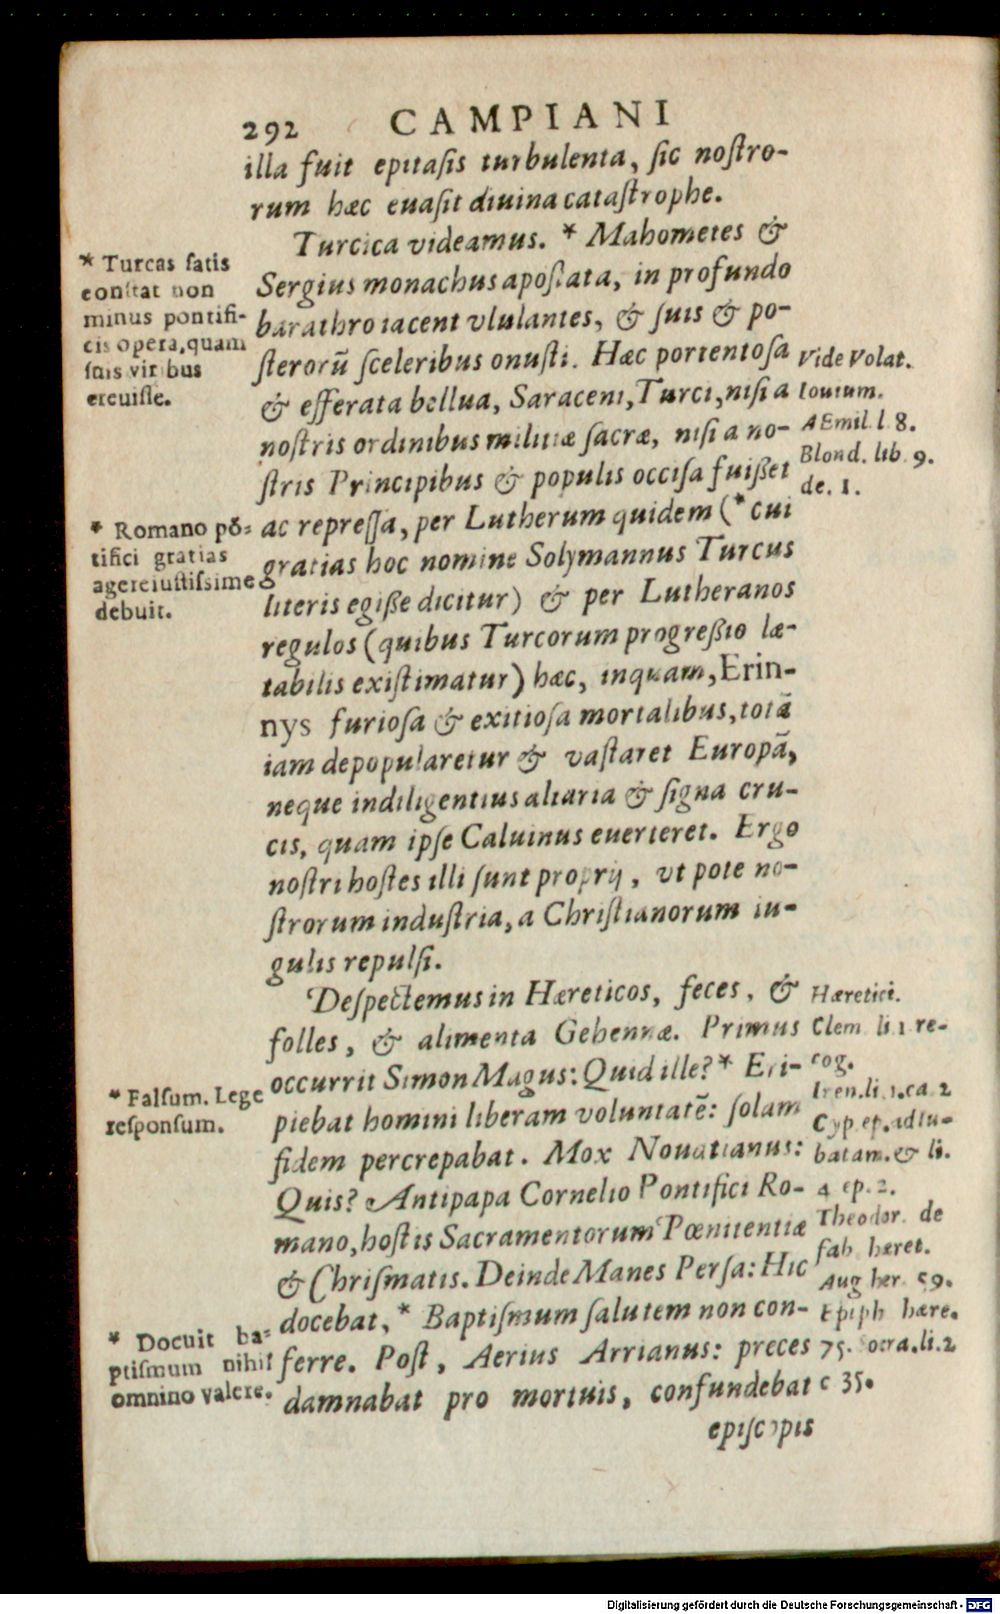 292 CAMPIANI
illa fuit epitaſis turbulenta, ſic noſtro-
rum hæc euaſit diuina cataſtrophe.
Turcica videamus. * Mahometes &
Sergius monachus apoſtata, in profundo
barathro iacent vlulantes, & ſuis & po-
ſterorũ ſceleribus onuſti. Hæc portentoſa
& efferata bellua, Saraceni, Turci, niſi a
noſtris ordinibus militiæ ſacræ, niſi a no-
ſtris Principibus & populis occiſa fuißet
ac repreſſa, per Lutherum quidem (* cui
gratias hoc nomine Solymannus Turcus
literis egiße dicitur) & per Lutheranos
regulos (quibus Turcorum progreßio læ-
tabilis exiſtimatur) hæc, inquam, Erin-
nys furioſa & exitioſa mortalibus, totã
iam depopularetur & vaſtaret Europã,
neque indiligentius altaria & ſigna cru-
cis, quam ipſe Caluinus euerteret. Ergo
noſtri hoſtes illi ſunt proprij, vt pote no-
ſtrorum induſtria, a Chriſtianorum iu-
gulis repulſi.
Deſpectemus in Hæreticos, feces, &
folles, & alimenta Gehennæ. Primus
occurrit Simon Magus: Quid ille? * Eri-
piebat homini liberam voluntatẽ: ſolam
fidem percrepabat. Mox Nouatianus:
Quis? Antipapa Cornelio Pontifici Ro-
mano, hoſtis Sacramentorum Pœnitentiæ
& Chriſmatis. Deinde Manes Perſa: Hic
docebat, * Baptiſmum ſalutem non con-
ferre. Poſt, Aerius Arrianus: preces
damnabat pro mortuis, confundebat
epiſcopis
* Turcas ſatis
conſtat non
minus pontifi-
cis opera, quam
ſuis viribus
creuiſſe.
* Romano põ-
tifici gratias
agere iuſtiſsime
debuit.
* Falſum. Lege
reſponſum.
* Docuit ba-
ptiſmum nihil
omnino valere.
Vide Volat.
Iouium.
AEmil. l. 8.
Blond. lib. 9.
de. 1.
Hæretici.
Clem. li. 1. re-
cog.
Iren. li. 1. ca. 2
Cyp. ep. ad Iu-
batam. & li.
4 ep. 2.
Theodor. de
fab. hæret.
Aug. her. 59.
Epiph. hære.
75. Socra. li. 2
c 35.
Digitalisierung gefördert durch die Deutsche Forschungsgemeinschaft - DFG